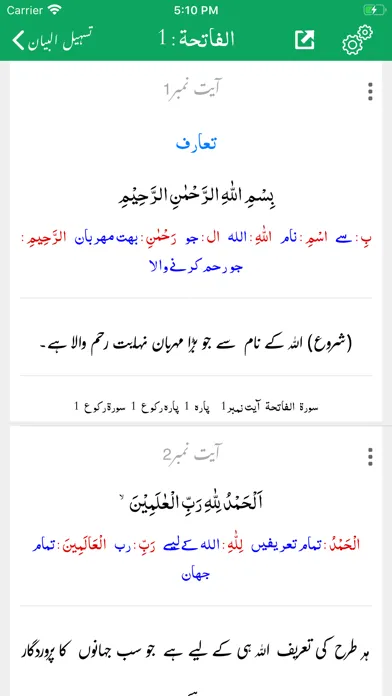 Carrier 5:10 PM
تسہیل البیان
الفاتحة : 1
آیت نمبر1
تعارف
بِسْمِ اللهِ الرَّحْمٰنِ الرَّحِيْمِ
بِ: سے اسْمِ: نام اللهِ: الله ال: جو رَحْمٰنِ: بهت مهربان الرَّحِيمِ:
جو رحم کرنے والا
(شروع) اللہ کے نام سے جو بڑا مہربان نہایت رحم والا ہے۔
سورة الفاتحة آیت نمبر1 پارہ 1 پارہ رکوع 1 سورۃ رکوع 1
آیت نمبر2
اَلْحَمْدُ لِلّٰهِ رَبِّ الْعٰلَمِيْنَ ۙ
الْحَمْدُ: تمام تعریفیں لِلّٰهِ: الله کے لیے رَبِّ: رب الْعَالَمِينَ: تمام
جهان
ہر طرح کی تعریف اللہ ہی کے لیے ہے جو سب جہانوں کا پروردگار
ہے